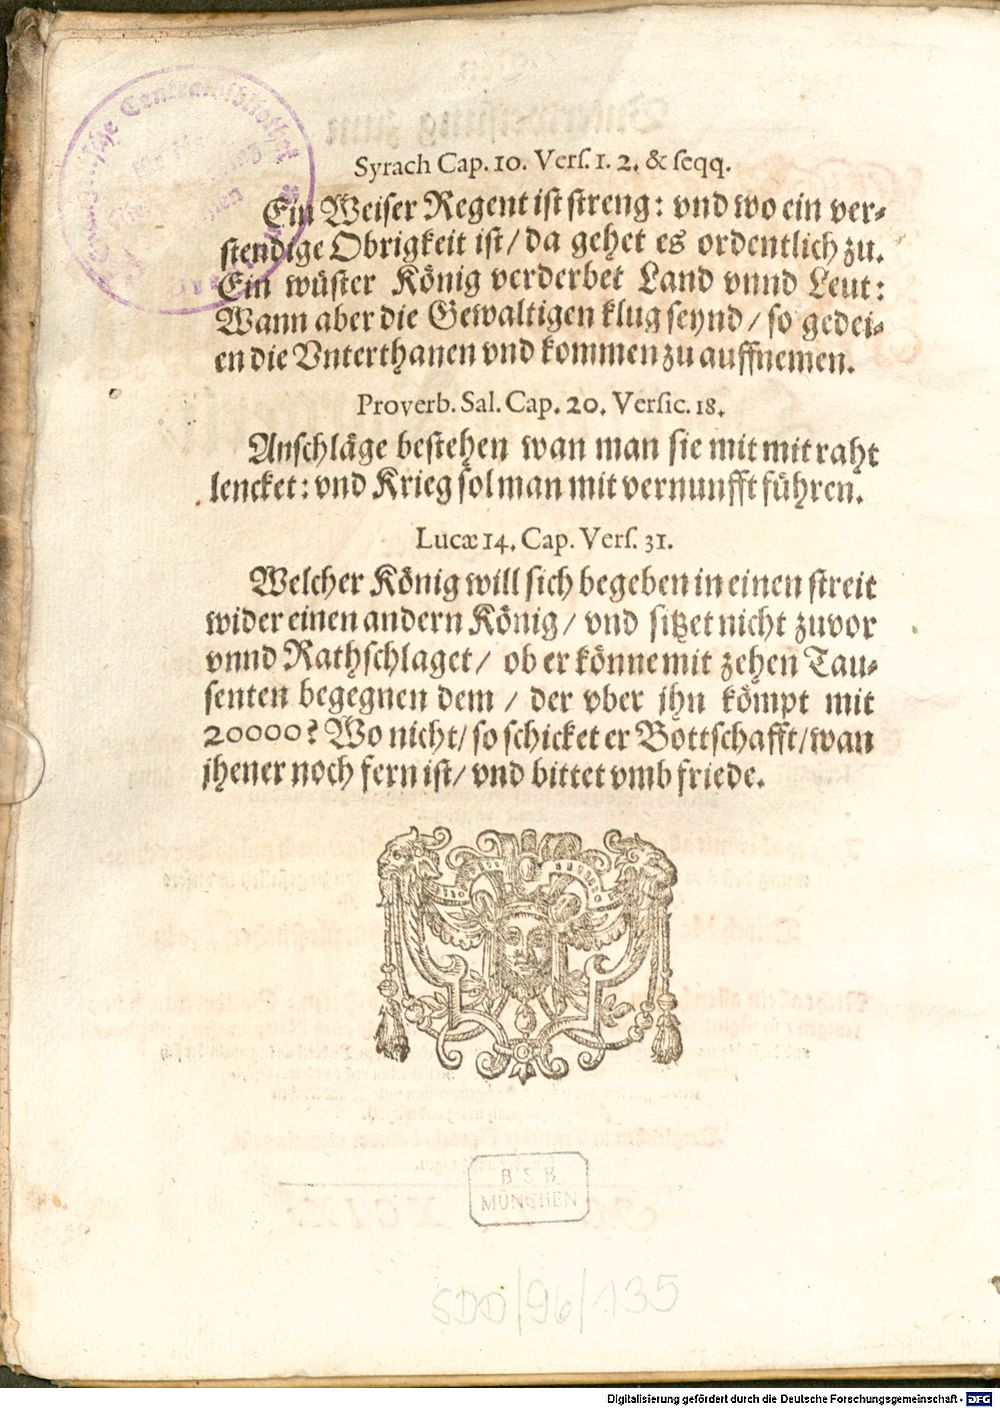 Syrach Cap. 10. Verſ. 1. 2. & ſeqq.
Ein Weiſer Regent iſt ſtreng: vnd wo ein ver-
ſtendige Obrigkeit iſt/ da gehet es ordentlich zu.
Ein wüſter König verderbet Land vnnd Leut:
Wann aber die Gewaltigen klug ſeynd/ ſo gedei-
en die Vnterthanen vnd kommen zu auffnemen.
Proverb. Sal. Cap. 20. Verſic. 18.
Anſchläge beſtehen wan man ſie mit mit raht
lencket: vnd Krieg ſol man mit vernunfft führen.
Lucæ 14. Cap. Verſ. 31.
Welcher König will ſich begeben in einen ſtreit
wider einen andern König/ vnd ſitzet nicht zuvor
vnnd Rathſchlaget/ ob er könne mit zehen Tau-
ſenten begegnen dem / der vber jhn kömpt mit
20000? Wo nicht/ ſo ſchicket er Bottſchafft/ wan
jhener noch fern iſt/ vnd bittet vmb friede.
B S B
MÜNCHEN
SDD/96/135
Digitalisierung gefördert durch die Deutsche Forschungsgemeinschaft - DFG